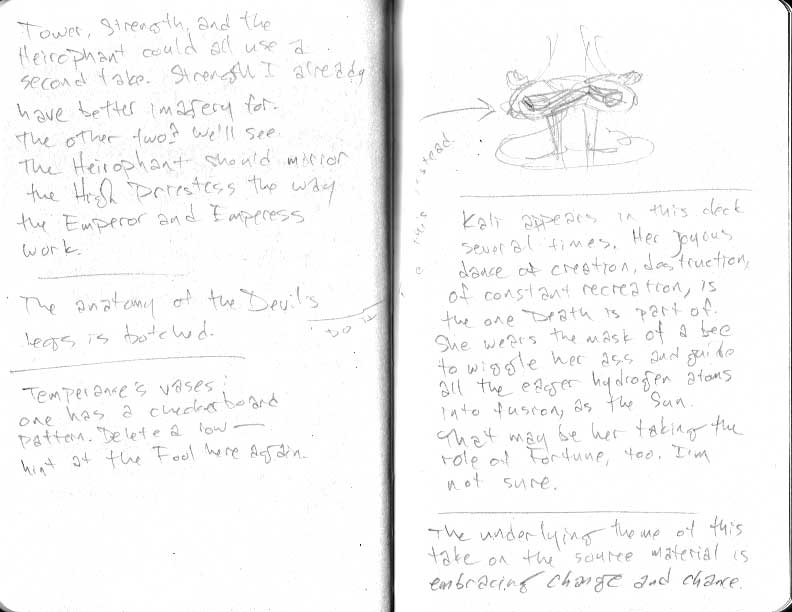 Tower, Strength, and the
Heirophant could all use a
second take. Strength I already
have better imagery for.
The other two? We'll see.
The Heirophant should mirror
the High Prrestess the way
the Emperor and Emperess
work.
The anatomy of the Devil's
legs is botched.
do it
this instead.
Temperance's vases:
one has a checkerboard
pattern. Delete a low —
hint at the Fool here again.
Kali appears in this deck
several times. Her joyous
dance of creation, destruction,
of constant recreation, is
the one Death is part of.
She wears the mask of a bee
to wiggle her ass and guide
all the eager hydrogen atoms
into fusion, as the Sun.
That may be her taking the
role of Fortune, too. I'm
not sure.
The underlying theme of this
take on the source material is
embracing change and chance.